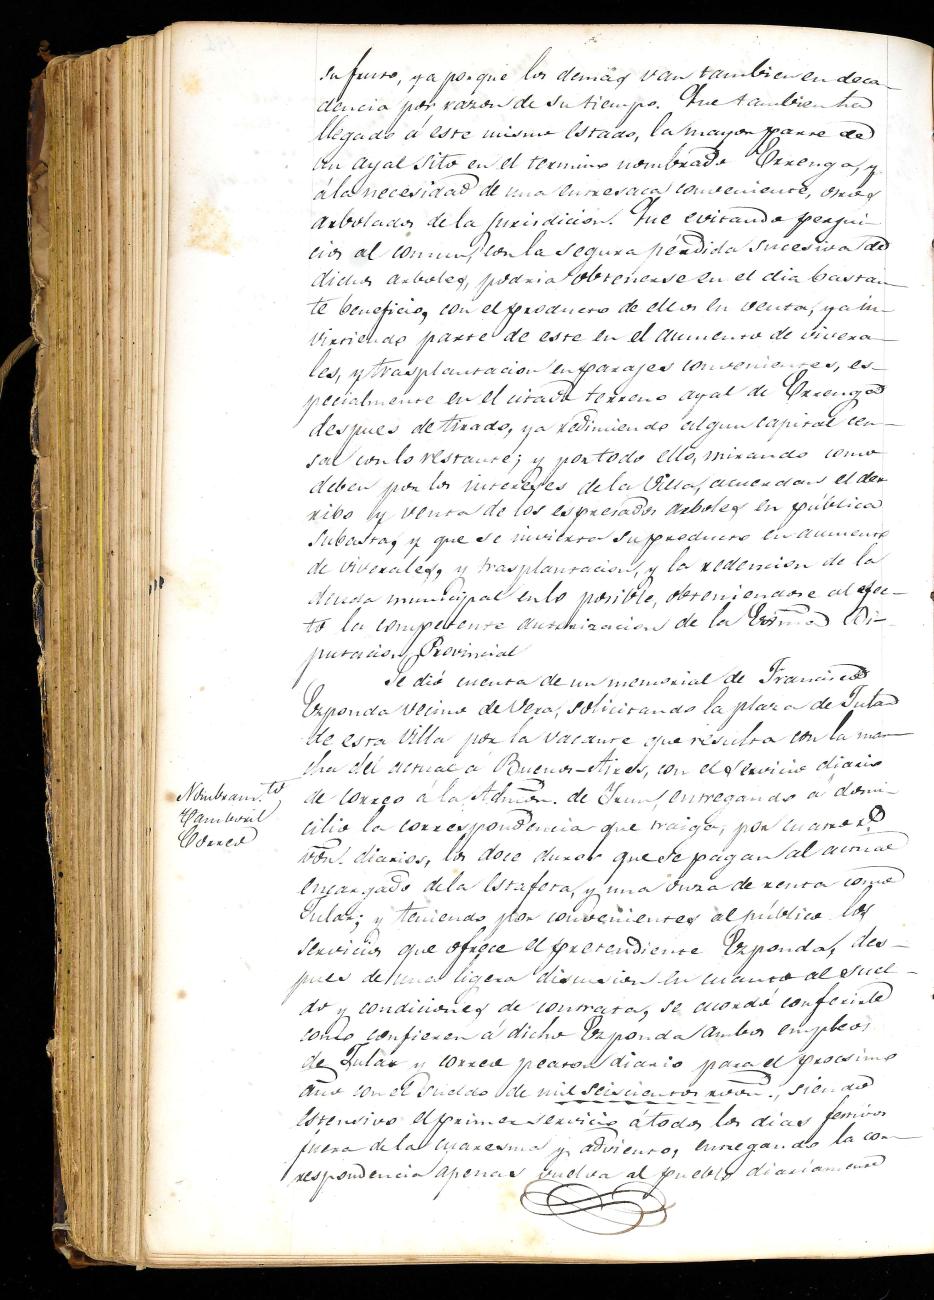 su fruto, ya porque los demas van tambien en deca-
dencia por razon de su tiempo. Que tambien ha
llegado á este mismo estado, la mayor parte de
un ayal sito en el termino nombrado Errenga, y
á la necesidad de una entresaca conveniente, otros
arbolados de la Jurisdicion. Que evitando perjui-
cios al comun, con la segura pérdida sucesiva de
dichos arboles, podria obtenerse en el dia bastan-
te beneficio, con el producto de ellos en venta, ya in-
virtiendo parte de este en el aumento de vivera-
les, y trasplantacion en parajes convenientes, es-
pecialmente en el citado terreno ayal de Errenga
despues de tirado, ya redimiendo algun capital cen-
sal con lo restante; y por todo ello, mirando como
deben por los intereses de la Villa, acuerdan el der-
ribo y venta de los espresados arboles en pública
subasta, y que se invierta su producto en aumento
de viverales, y trasplantacion, y la redencion de la
deuda municipal en lo posible, obteniendose al efec-
to la competente autorizacion de la Exma Di-
putacion Provincial
Se dió cuenta de un memorial de Francisco
Erponda vecino de Vera, solicitando la plaza de Tular
de esta Villa por la vacante que resulta con la mar-
cha del actual á Buenos-Aires, con el servicio diario
Nombram.to
Tamboril
Correo
de correo á la Admon. de Irun, entregando á domi-
cilio la correspondencia que traiga, por cuatro r.s
von. diarios, los doce duros que se pagan al actual
encargado de la Estafeta, y una onza de renta como
Tular; y teniendo por convenientes al público los
servicios que ofrece el pretendiente Erponda, des-
pues de una ligera discusion en cuanto al suel-
do y condiciones de contrata, se acordó conferirle
como confieren á dicho Erponda ambos empleos
de Tular y correo peaton diario para el procsimo
año con el sueldo de mil seiscientos r.von., siendo
estensivo el primer servicio á todos los dias festivos
fuera de la cuaresma y adviento, entregando la cor-
respondencia apenas vuelva al pueblo diariamente